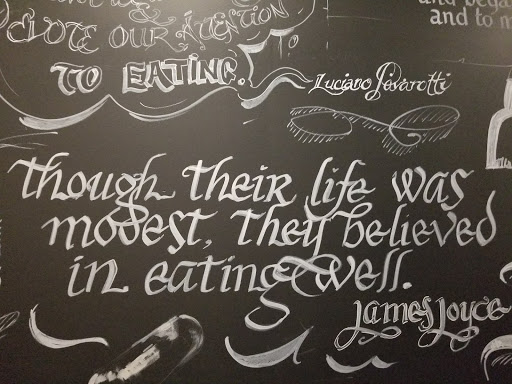 and bega
and to m
&
devote our attention
to eating.
Luciano Pavarotti
though their life was
modest, they believed
in eating well.
James Joyce